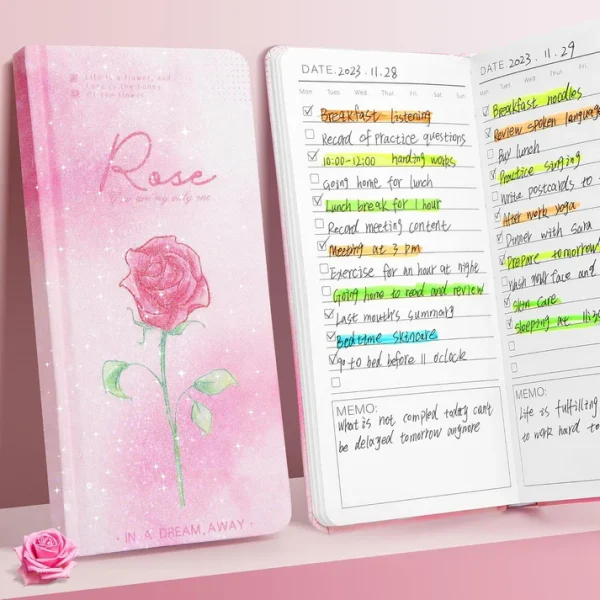 Life is a flower, and
Love is the honey
of the flower.
Rose
If you are my only one
· IN A DREAM, AWAY ·
DATE. 2023.11.28
Mon. Tues. Wed. Thur. Fri. Sat. Sun.
Breakfast listening
Record of Practice questions
10:00-12:00 handing works
Going home for lunch
Lunch break for 1 hour
Record meeting content
Meeting at 3 pm
Exercise for an hour at night
Going home to read and review
Last mouth's summary
Bedtime skincare
go to bed before 11 oclock
MEMO:
What is not compled today can't
be delayed tomorrow anymore
DATE. 2023.11.29
Mon. Tues. Wed. Thur. Fri.
Breakfast noodles
Review spoken language
Buy lunch
Practice singing
Write postcards to
After work yoga
Dinner with Sara
Prepare tomorrow
Wash my face and
Skin Care
Sleeping at 11:30
MEMO:
Life is fulfilling
to work hard to